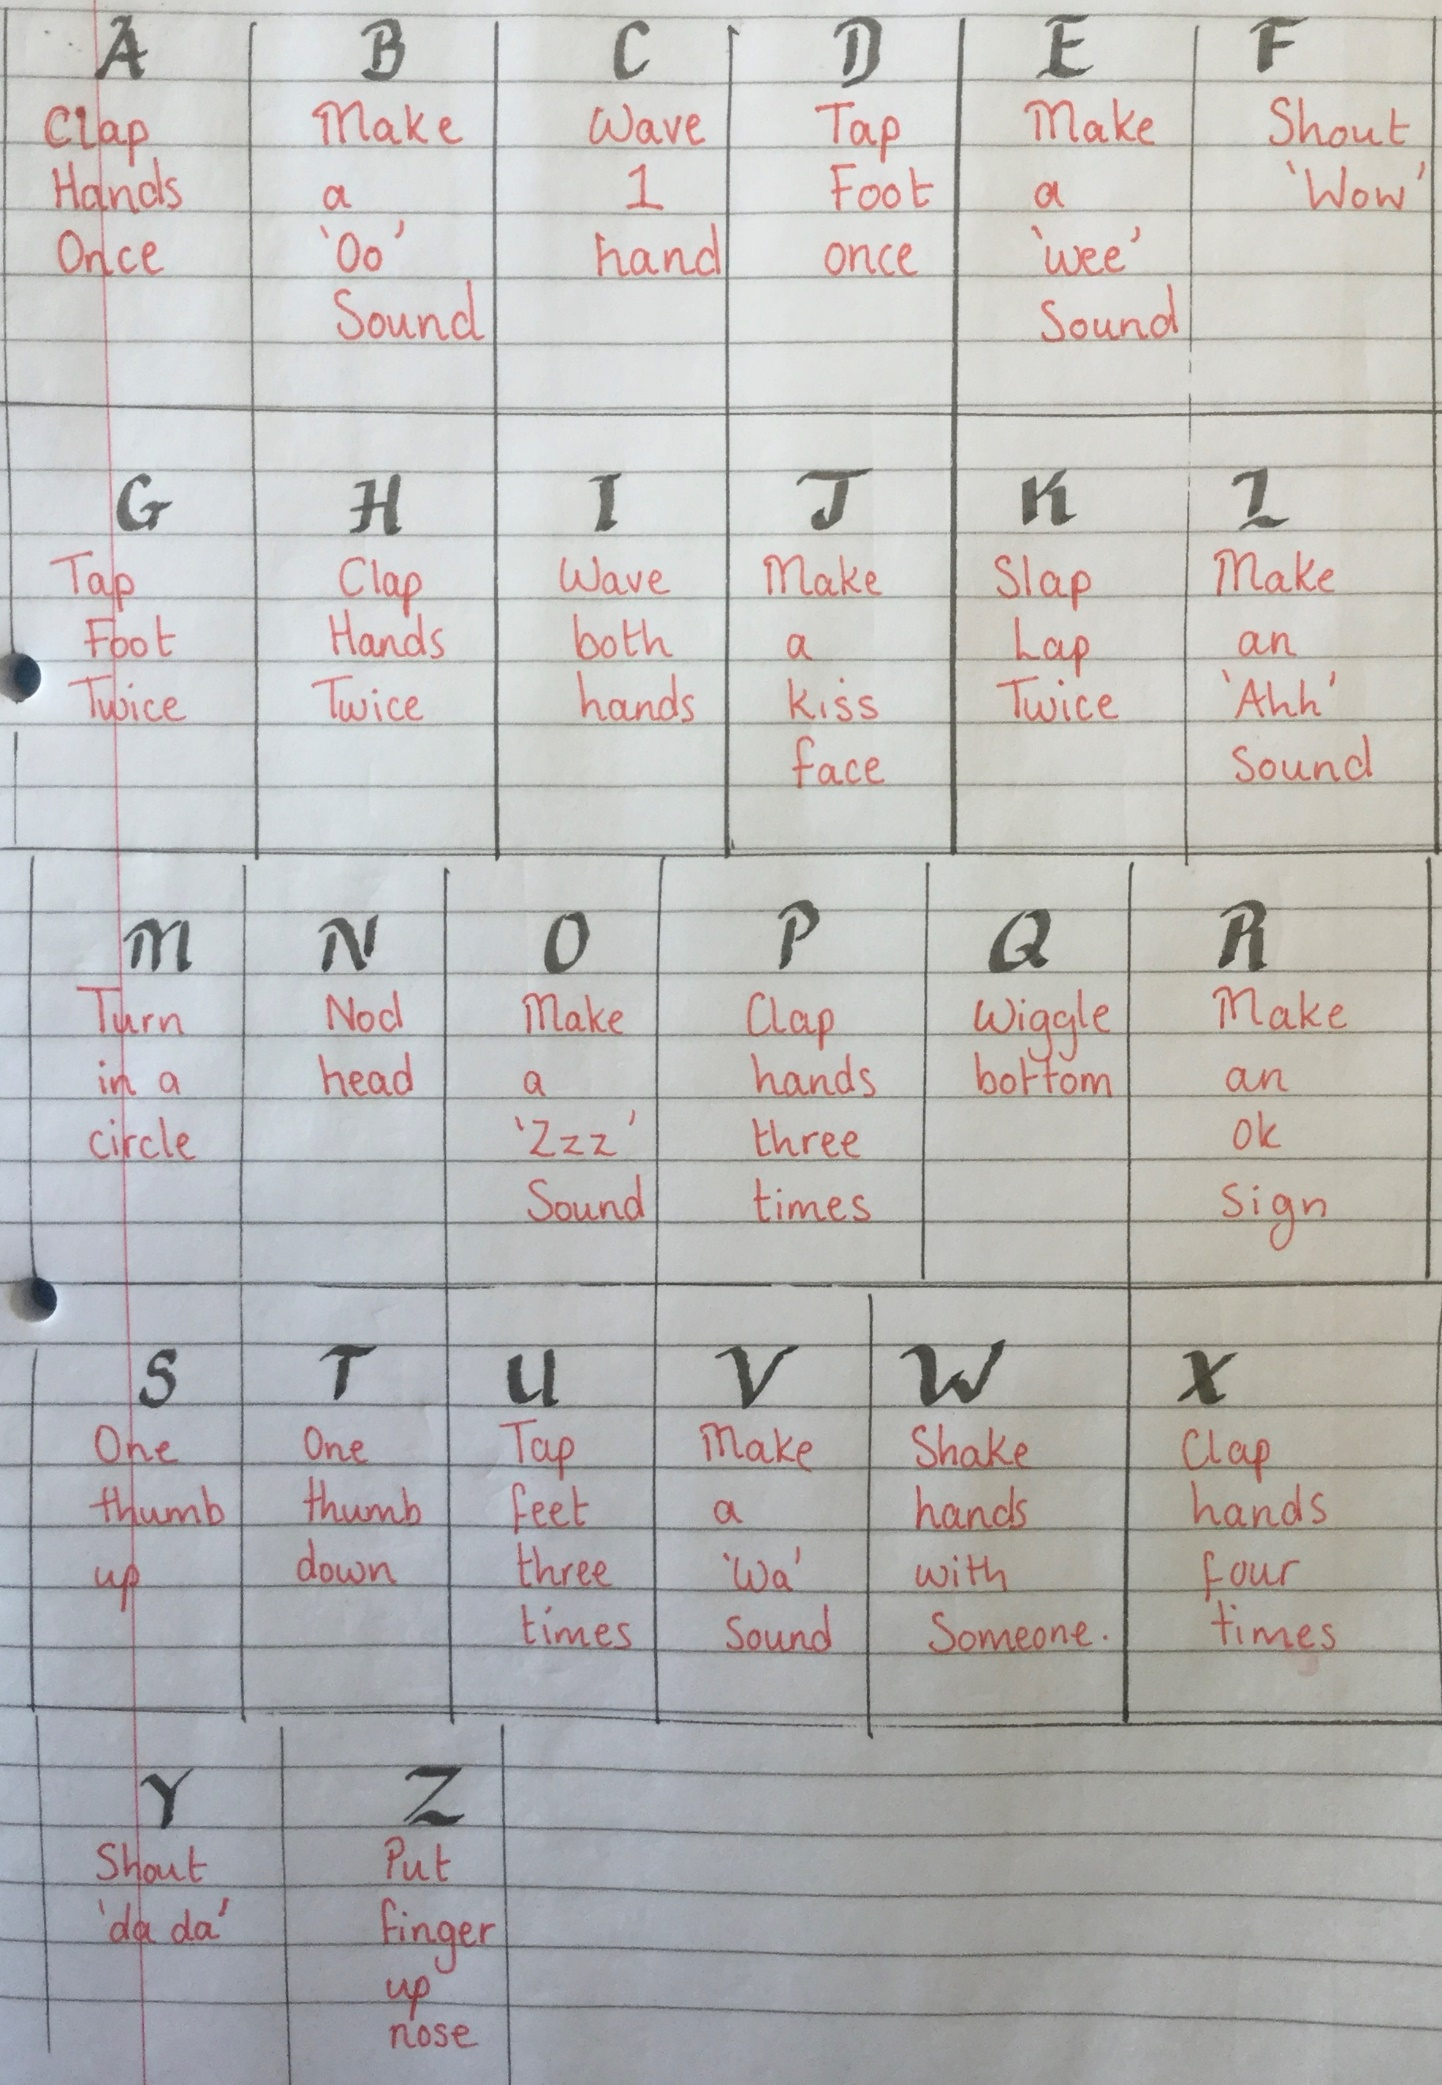 A
Clap
Hands
Once
B
Make
a
'Oo'
Sound
C
Wave
1
hand
D
Tap
Foot
once
E
Make
a
'wee'
Sound
F
Shout
'Wow'
G
Tap
Foot
Twice
H
Clap
Hands
Twice
I
Wave
both
hands
J
Make
a
kiss
face
K
Slap
Lap
Twice
L
Make
an
'Ahh'
Sound
M
Turn
in a
circle
N
Nod
head
O
Make
a
'Zzz'
Sound
P
Clap
hands
three
times
Q
Wiggle
bottom
R
Make
an
ok
Sign
S
One
thumb
up
T
One
thumb
down
U
Tap
feet
three
times
V
Make
a
'Wa'
Sound
W
Shake
hands
with
Someone.
X
Clap
hands
four
times
Y
Shout
'da da'
Z
Put
finger
up
nose